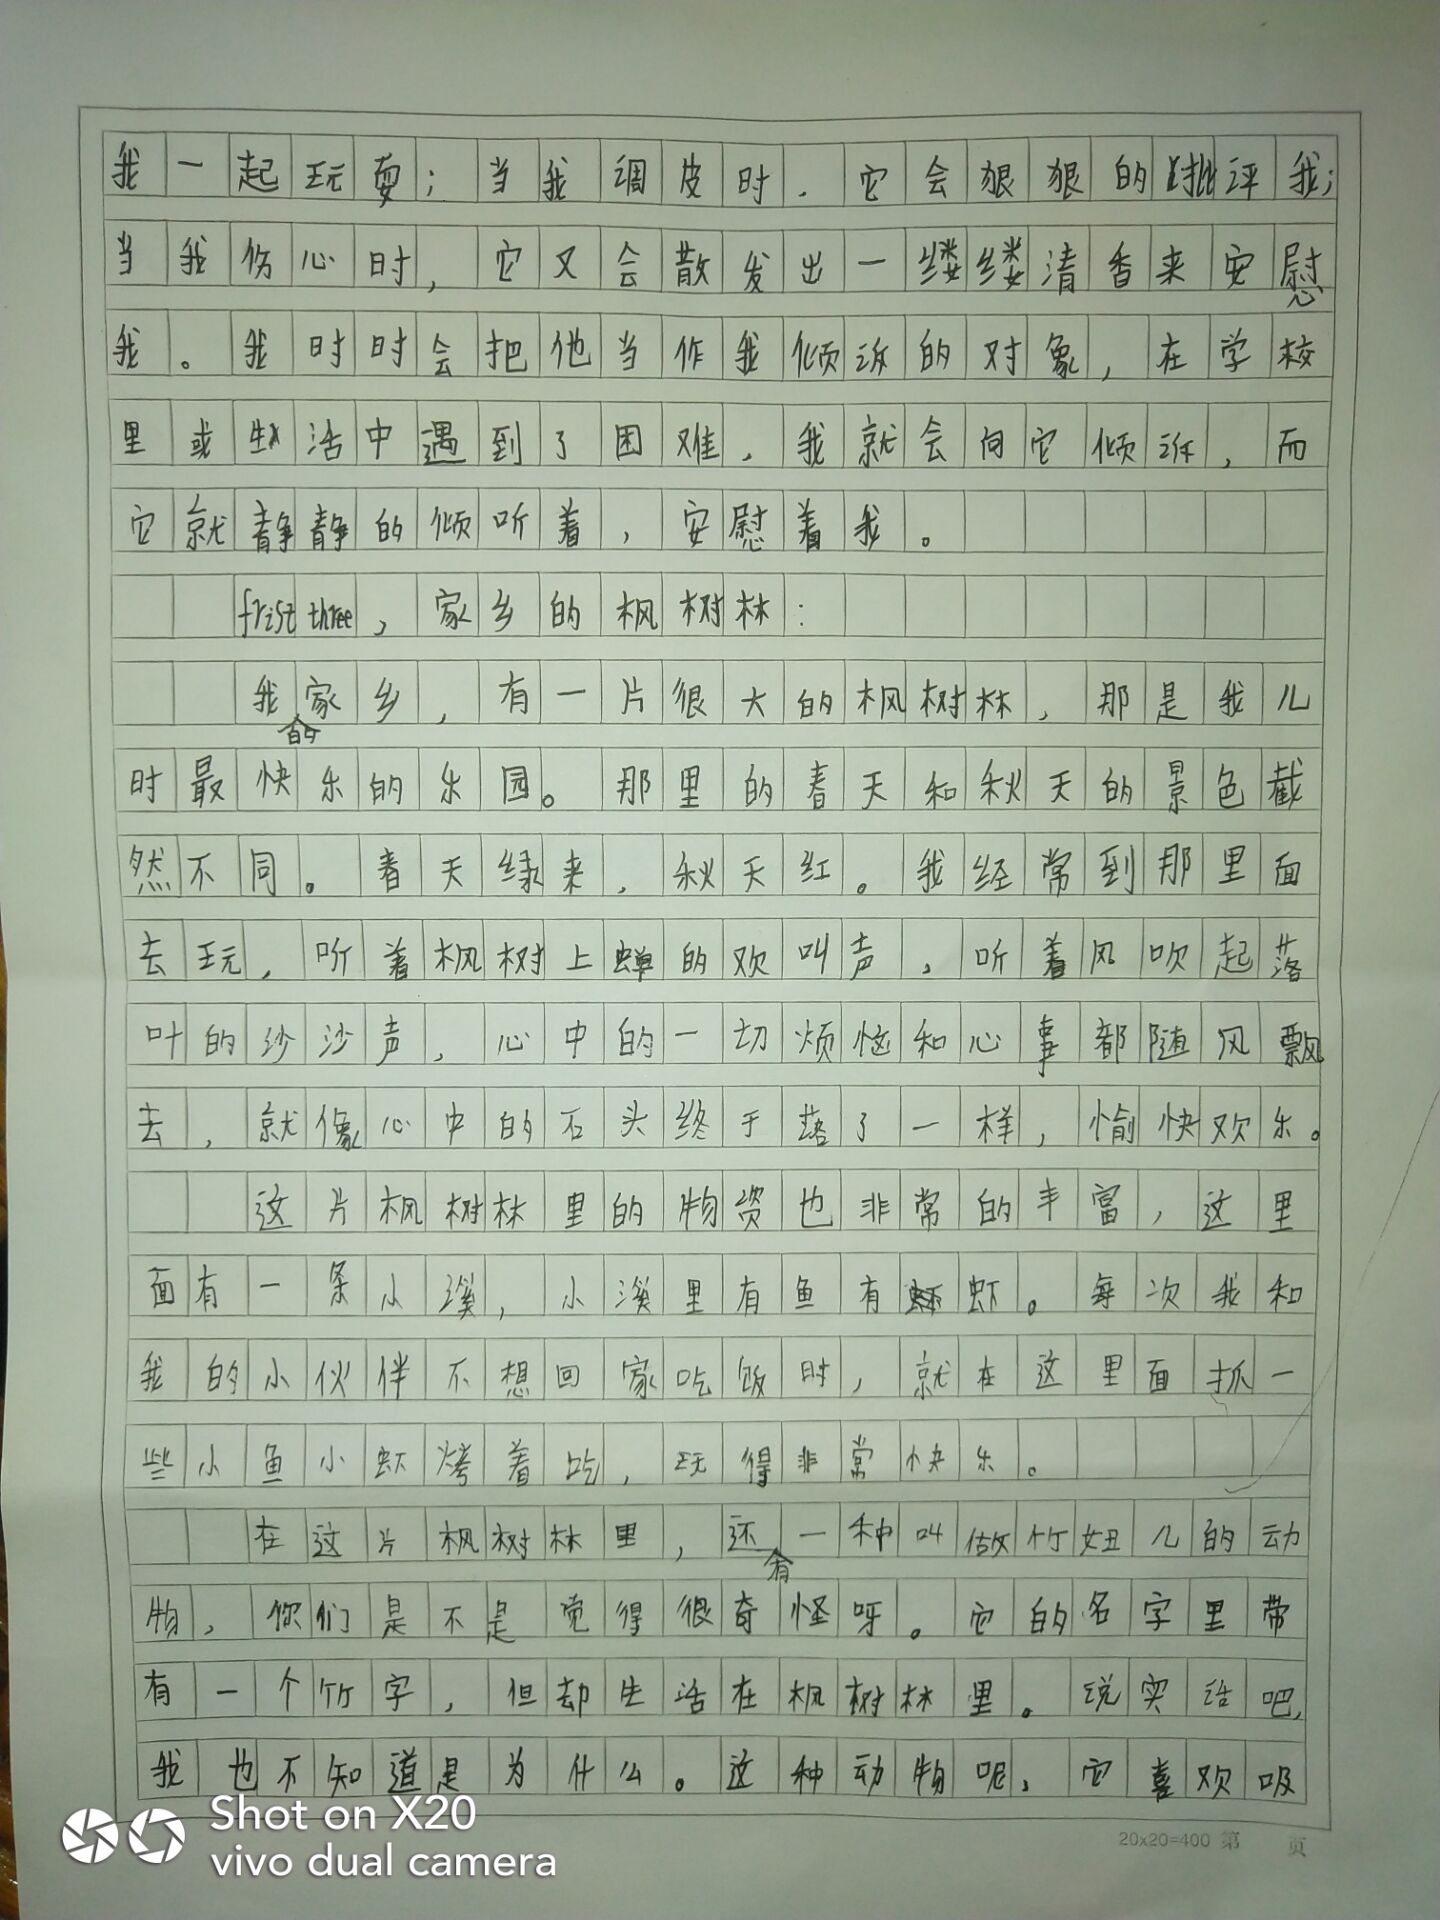 我一起玩耍；当我调皮时，它会狠狠的批评我；
当我伤心时，它又会散发出一缕缕清香来安慰
我。我时时会把他当作我倾诉的对象，在学校
里或生活中遇到了困难，我就会向它倾诉，而
它就静静的倾听着，安慰着我。
frist three，家乡的枫树林：
我的家乡，有一片很大的枫树林，那是我儿
时最快乐的乐园。那里的春天和秋天的景色截
然不同。春天绿来，秋天红。我经常到那里面
去玩，听着枫树上蝉的欢叫声，听着风吹起落
叶的沙沙声，心中的一切烦恼和心事都随风飘
去，就像心中的石头终于落了一样，愉快欢乐。
这片枫树林里的物资也非常的丰富，这里
面有一条小溪，小溪里有鱼有虾。每次我和
我的小伙伴不想回家吃饭时，就在这里面抓一
些小鱼小虾烤着吃，玩得非常快乐。
在这片枫树林里，还有一种叫做竹妞儿的动
物，你们是不是觉得很奇怪呀。它的名字里带
有一个竹字，但却生活在枫树林里。说实话吧，
我也不知道是为什么。这种动物呢，它喜欢吸
20x20=400 第 页
Shot on X20
vivo dual camera